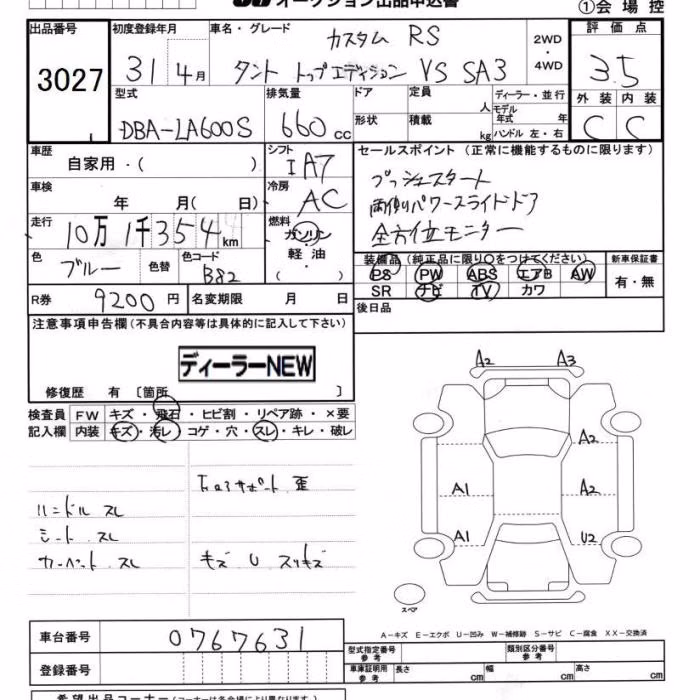 オークション出品申込書
①会場控
出品番号 3027
初度登録年月 31 4月
車名・グレード カスタム RS
タント トップエディション VS SA3
2WD ・ 4WD
評価点 3.5
外装 内装
C C
型式 DBA-LA600S
排気量 660 cc
ドア 定員 人
形状 積載 kg
ディーラー・並行
モデル年式 年
ハンドル 左・右
車歴 自家用・( )
シフト IA7
車検 年 月( 日)
冷房 AC
走行 10万1千354 km
燃料 ガソリン 軽油 ( )
色 ブルー 色替 色コード B82
R券 9200円 名変期限 月 日
セールスポイント (正常に機能するものに限ります)
プッシュスタート
両側パワースライドドア
全方位モニター
装備品 (純正品に限り○をつけてください) 新車保証書
PS PW ABS エアB AW 有・無
SR ナビ TV カワ
後日品
注意事項申告欄 (不具合内容等は具体的に記入して下さい)
ディーラーNEW
修復歴 有 〔箇所 〕
検査員 FW キズ・飛石・ヒビ割・リペア跡・×要
記入欄 内装 キズ・汚レ・コゲ・穴・スレ・キレ・破レ
サポート 歪
ハンドル スレ
シート スレ
カーペット スレ キズ U スリキズ
A2 A3
A2
A1 A2
A1 U2
スペア
A-キズ E-エクボ U-凹み W-補修跡 S-サビ C-腐食 XX-交換済
車台番号 0767631
登録番号
型式指定番号 参考 類別区分番号 参考
車庫証明用 参考 長さ cm 幅 cm 高さ cm
希望出品コーナー